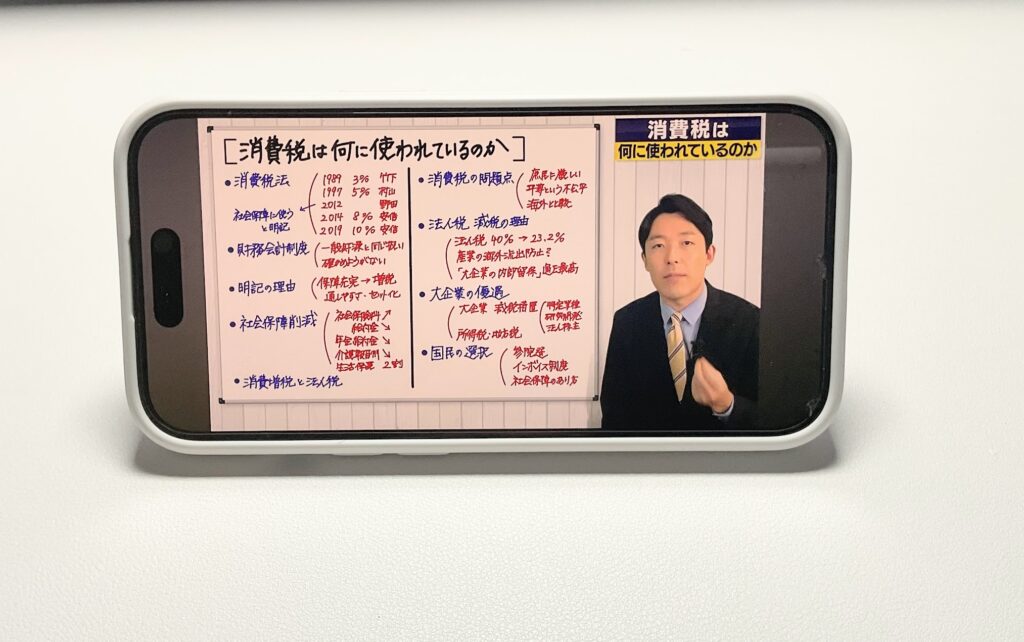 [消費税は何に使われているのか]
・消費税法
1989 3% 竹下
1997 5% 村山
2012 野田
2014 8% 安倍
2019 10% 安倍
社会保障に使う
と明記
・財務会計制度
一般財源と同じ扱い
確かめようがない
・明記の理由
保障充実→増税
通しやすす・セット化
・社会保障削減
社会保険料↗
給付金↘
年金給付金↘
介護報酬↘
生活保護 2割
・消費増税と法人税
・消費税の問題点
庶民に厳しい
平等という不公平
海外と比較
・法人税 減税の理由
法人税 40%→23.2%
産業の海外流出防止?
「大企業の内部留保」過去最高
・大企業の優遇
大企業 減税措置
特定業種
研究開発
法人株主
所得税・地方税
・国民の選択
参院選
インボイス制度
社会保障のあり方
消費税は
何に使われているのか